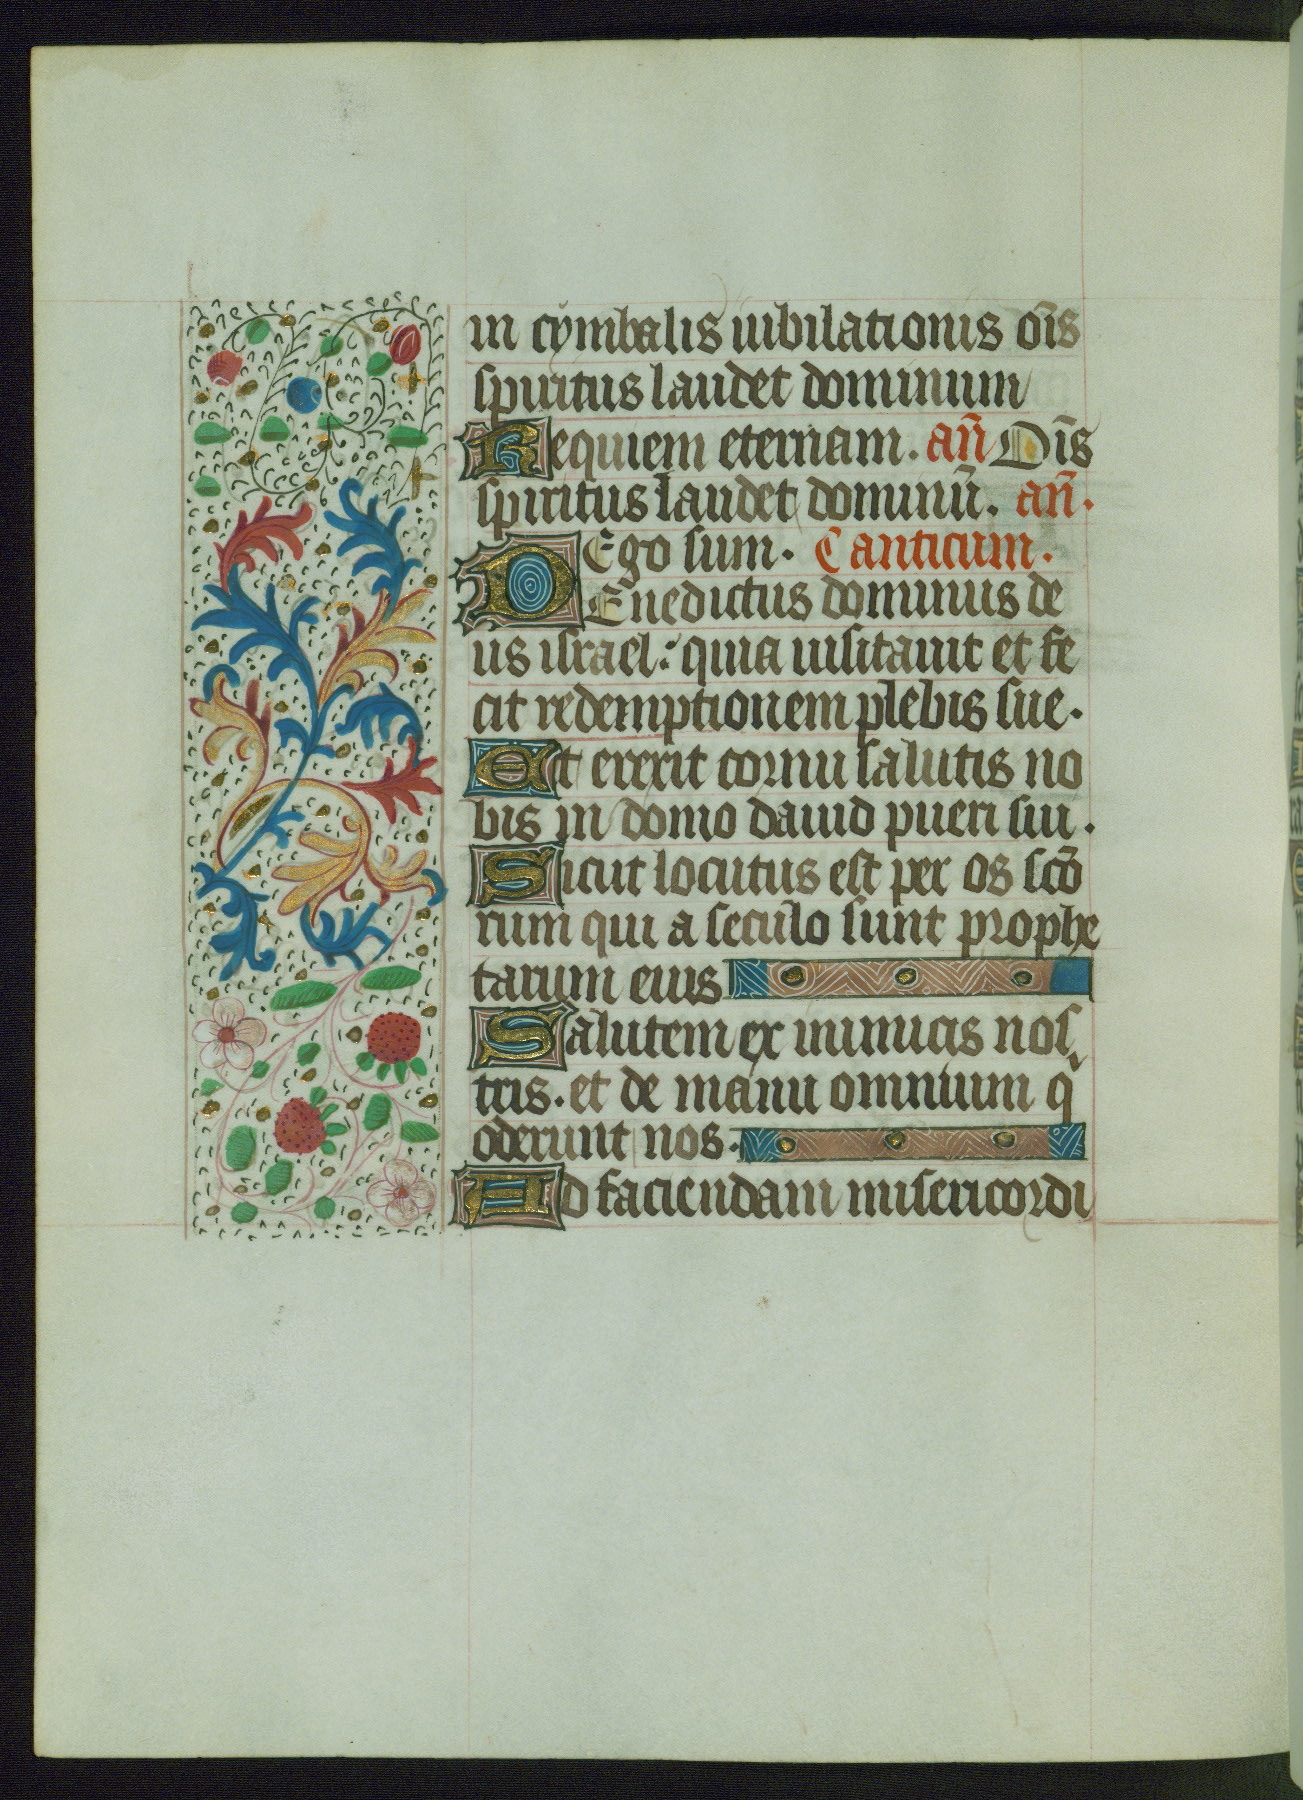 in cymbalis iubilationis oı̄s
spiritus laudet dominum
Requiem eternam. an̄ Oı̄s
spiritus laudet dominū. an̄.
Ego sum. Canticum.
DEnedictus dominus de
us israel: quia uisitauit et fe
cit redemptionem plebis sue.
Et erexit cornu salutis no
bis in domo dauid pueri sui.
Sicut locutus est per os scō
rum qui a seculo sunt prophe
tarum eius
Salutem ex inimicis nos
tris. et de manu omnium q
oderunt nos.
Ad faciendam misericordi